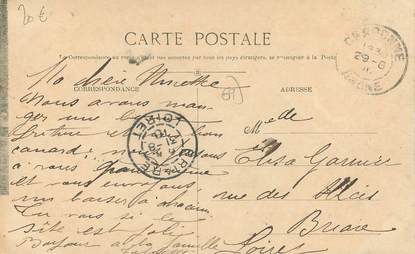 20 €
CARTE POSTALE
La Correspondance au recto n'est pas acceptée par tous les pays étrangers, se renseigner à la Poste
CORRESPONDANCE
ADRESSE
69
Ma chère Minette
Nous avons man-
gés une bonne
friture et un bon
canard; nous
à vous grand
nous envoyons
nos baisers à chacun
Tu vois si le
site est joli
Bonjour à la famille
Mede
Elisa Garnier
rue des
Briare
Loiret
29-8
RHONE
BRIARE
LOIRET